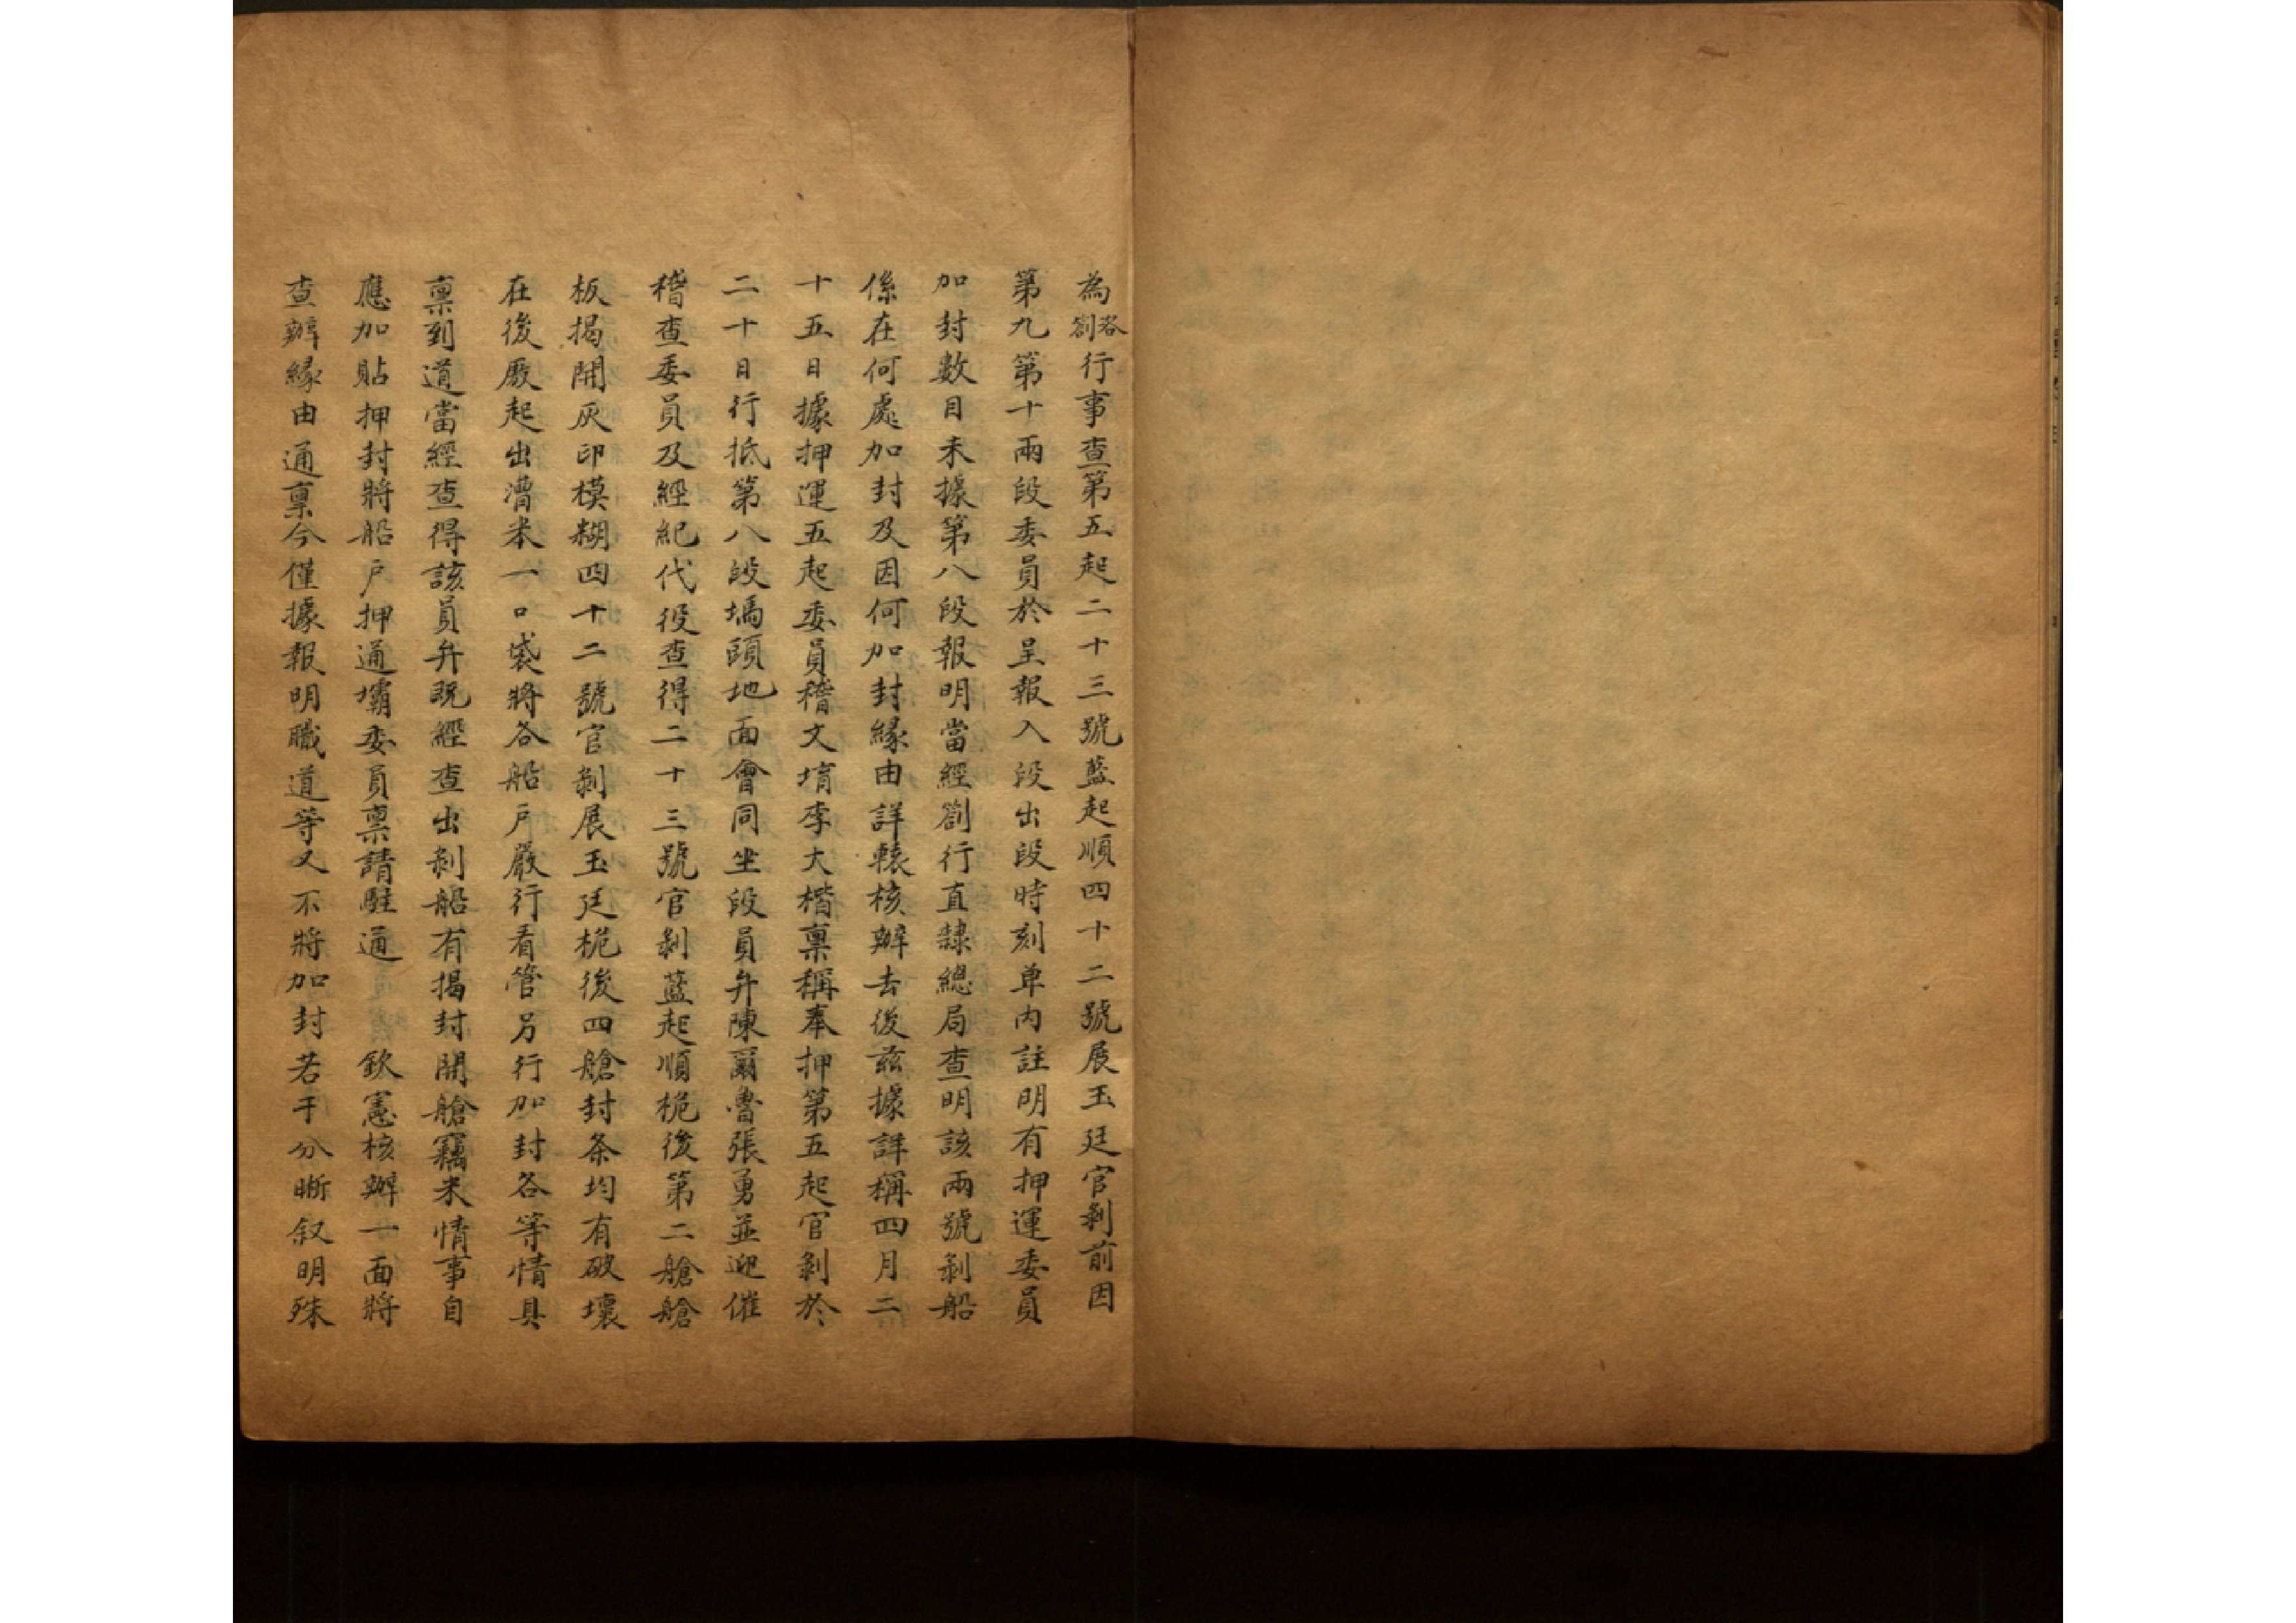 為咨劄行事查第五起二十三號藍起順四十二號展玉廷官剝前因
第九第十兩段委員於呈報入段出段時刻单內註明有押運委員
加封數目未據第八段報明當經劄行直隸總局查明該兩號剝船
係在何處加封及因何加封緣由詳轅核辦去後茲據詳稱四月二
十五日據押運五起委員稽文堉李大楷稟稱奉押第五起官剝於
二十日行抵第八段塥頭地面會同坐段員弁陳爾魯張勇並迎催
稽查委員及經紀代役查得二十三號官剝藍起順桅後第二艙艙
板揭開灰印模糊四十二號官剝展玉廷桅後四艙封条均有破壞
在後厫起出漕米一口袋將各船戶嚴行看管另行加封各等情具
稟到道當經查得該員弁既經查出剝船有揭封開艙竊米情事自
應加貼押封將船戶押通壩委員稟請駐通 欽憲核辦一面將
查辦緣由通稟今僅據報明職道等又不將加封若干分晰叙明殊